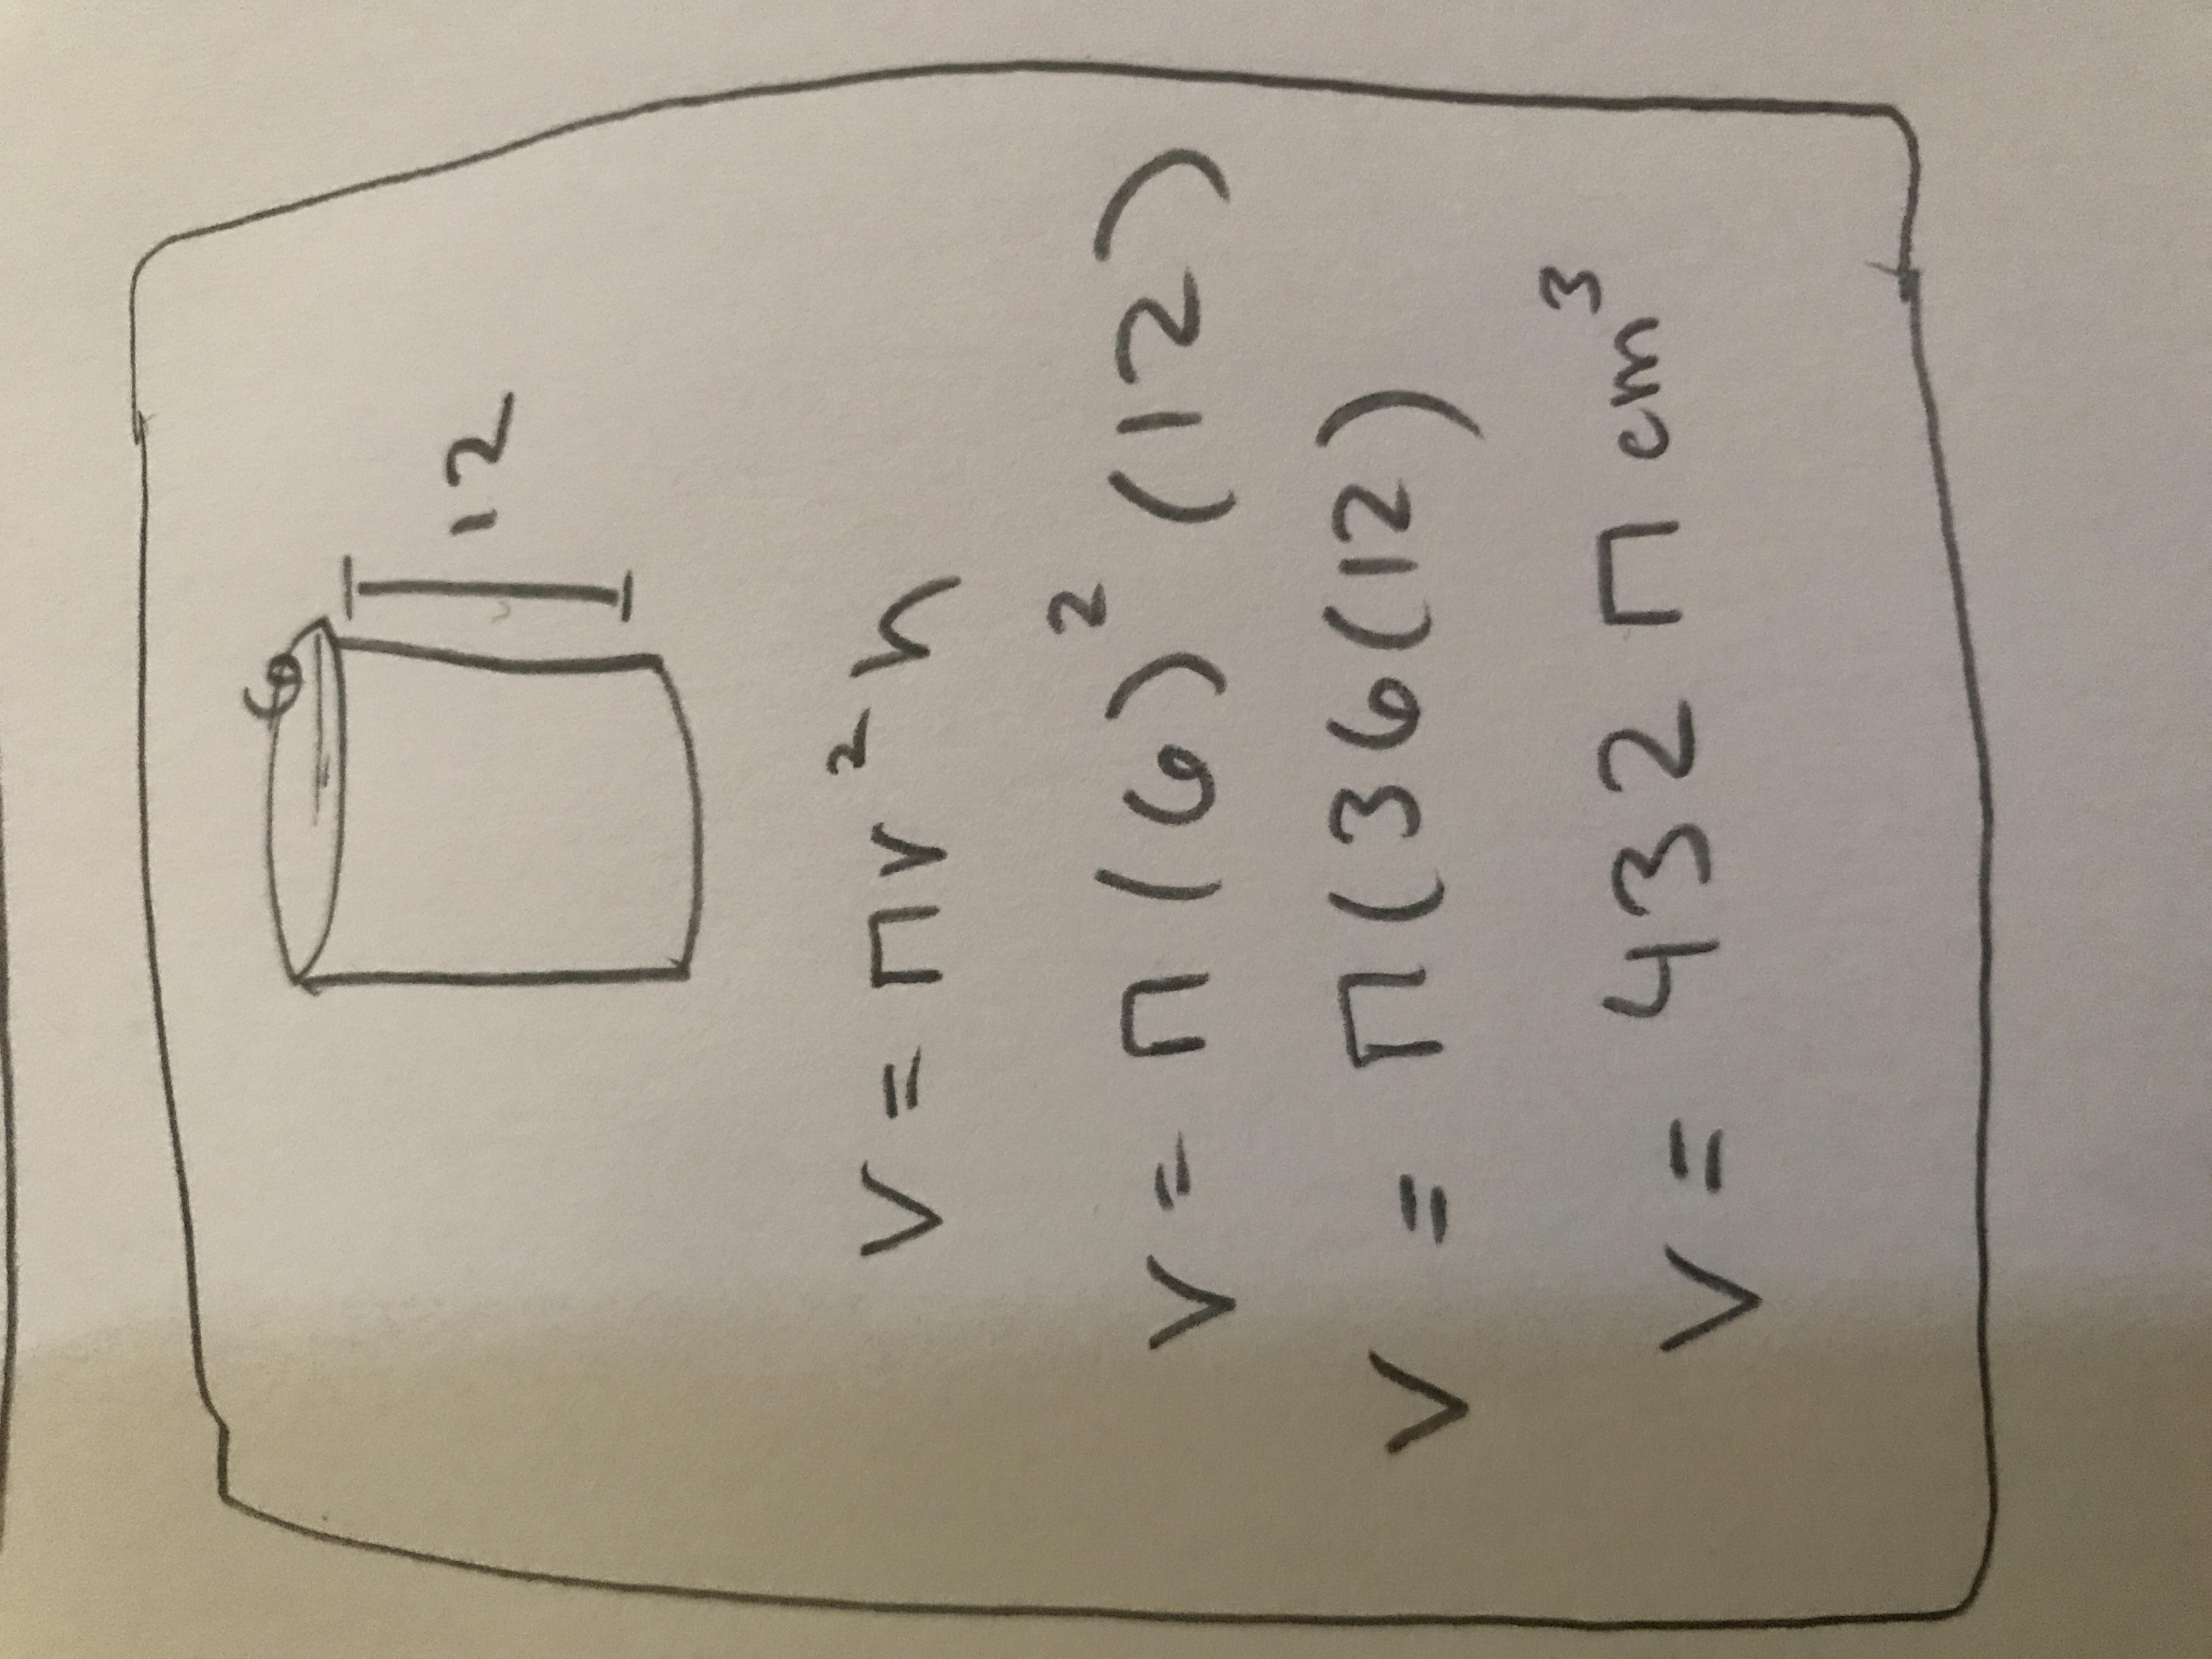 6
12
V = πr²h
V = π(6)²(12)
V = π(36(12)
V = 432 π cm³